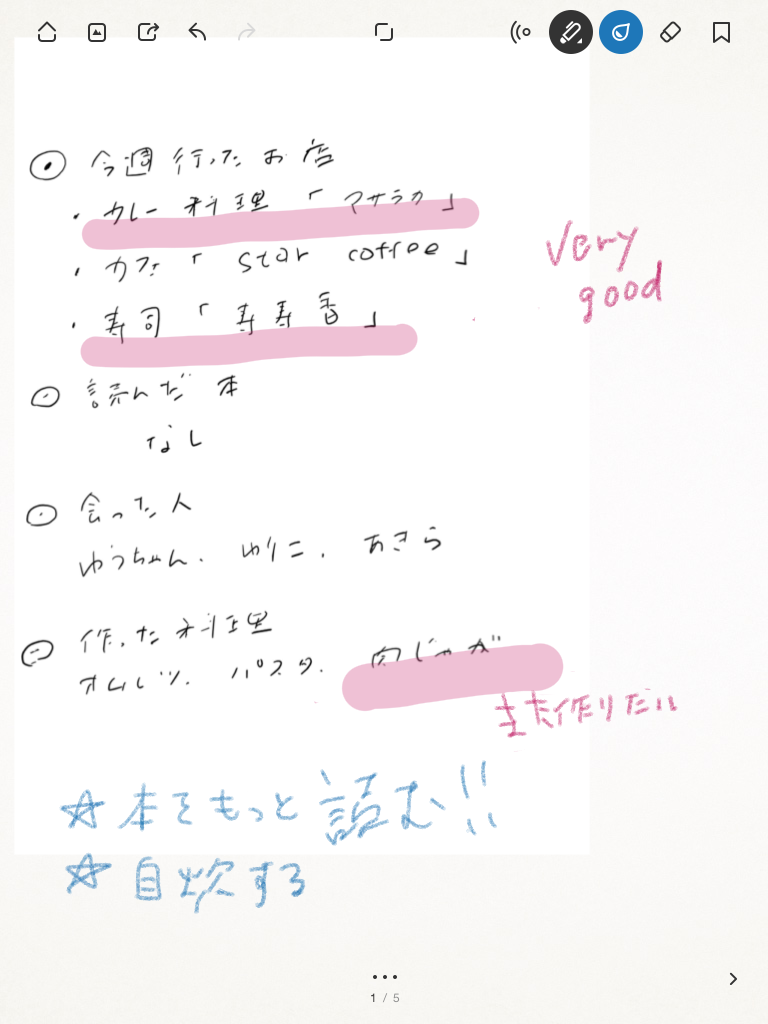 ⊙ 今週行ったお店
・カレー料理「マサラカ」
・カフェ「Star coffee」
Very
good
・寿司「寿寿香」
⊙ 読んだ本
なし
⊙ 会った人
ゆうちゃん. ゆりこ. あきら
⊙ 作った料理
オムレツ. パスタ. 肉じゃが
また作りたい
☆本をもっと読む!!
☆自炊する
1 / 5